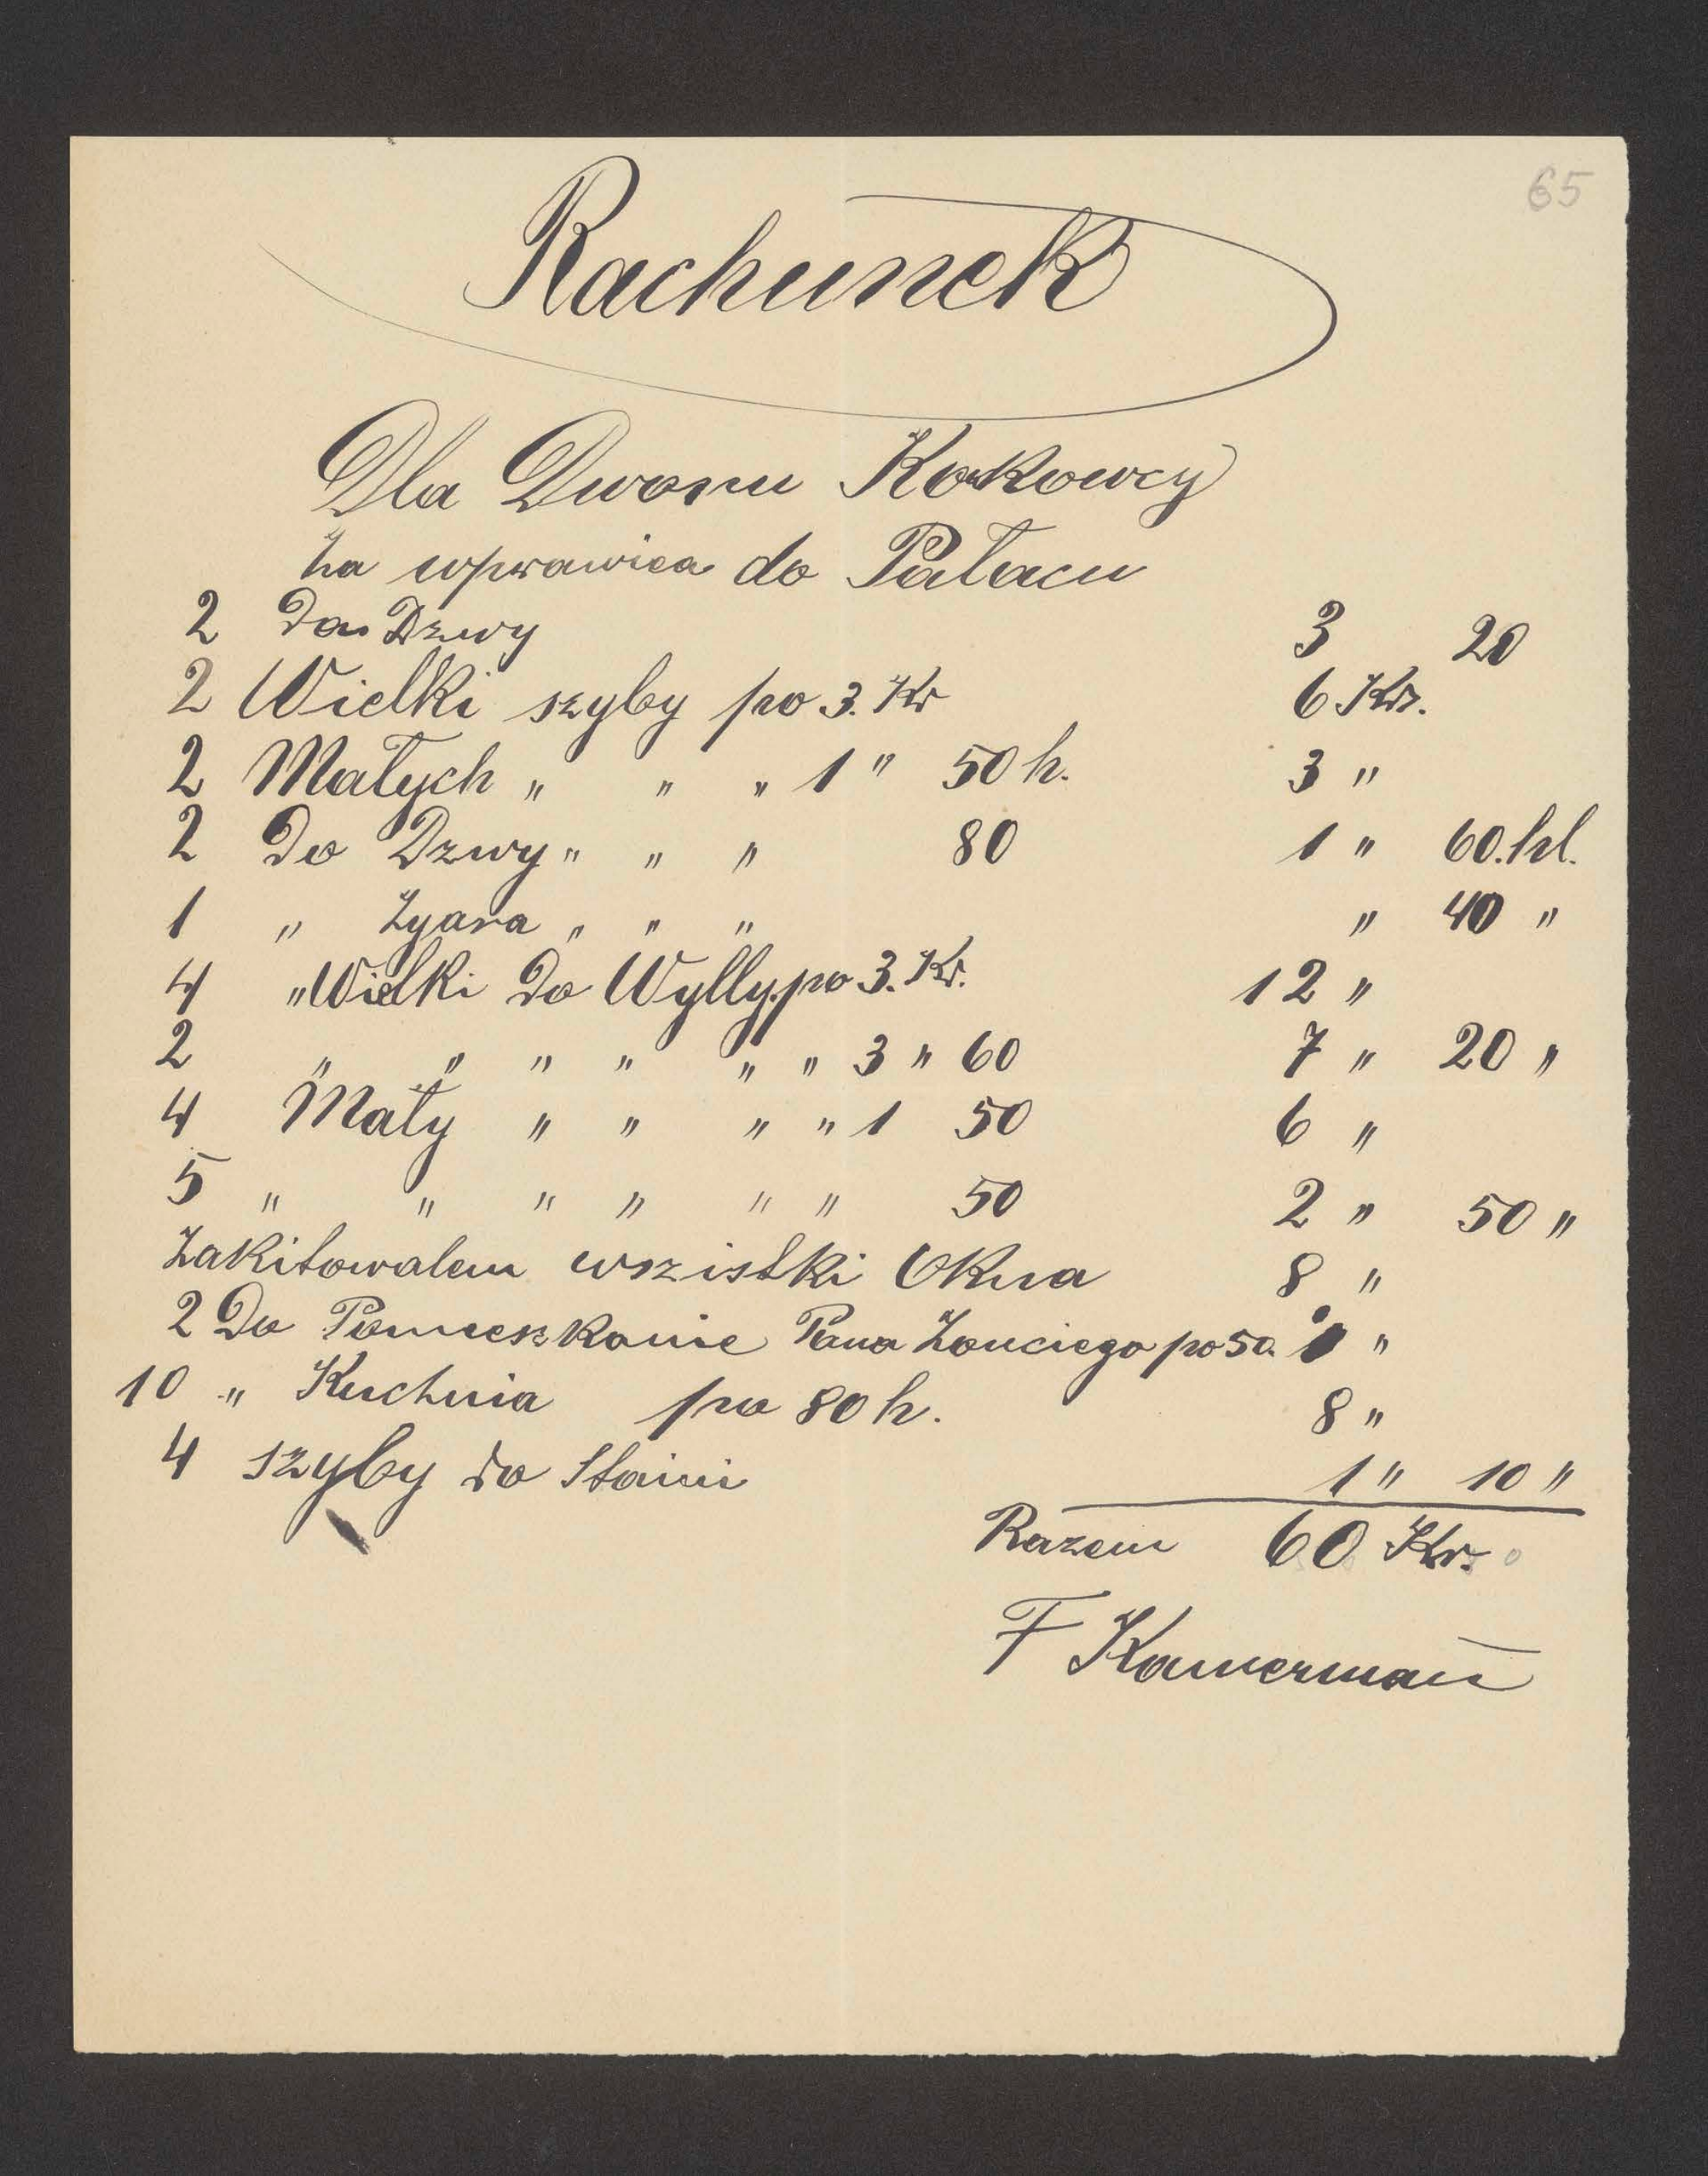 65
Rachunek
Dla Dworu Kokowcy
Za wprawiea do Pałacu
2 Do Drzwy 3 20
2 Wielki szyby po 3. Kr 6 Kr.
2 Małych " " " 1 " 50 h. 3 "
2 Do Drzwy " " " 80 1 " 60. hl.
1 " Zgara " " " " 40 "
4 " Wielki Do Wylly. po 3. Kr. 12 "
2 " " " " " " 3 " 60 7 " 20 "
4 Mały " " " " 1 50 6 "
5 " " " " " " 50 2 " 50 "
Zakitowalem wszistki Okna 8 "
2 Do Pomieszkanie Pana Zouciego po 50. 1 "
10 " Kuchnia po 80 h. 8 "
4 szyby do Staini 1 " 10 "
Razem 60 Kr.
F Kamerman